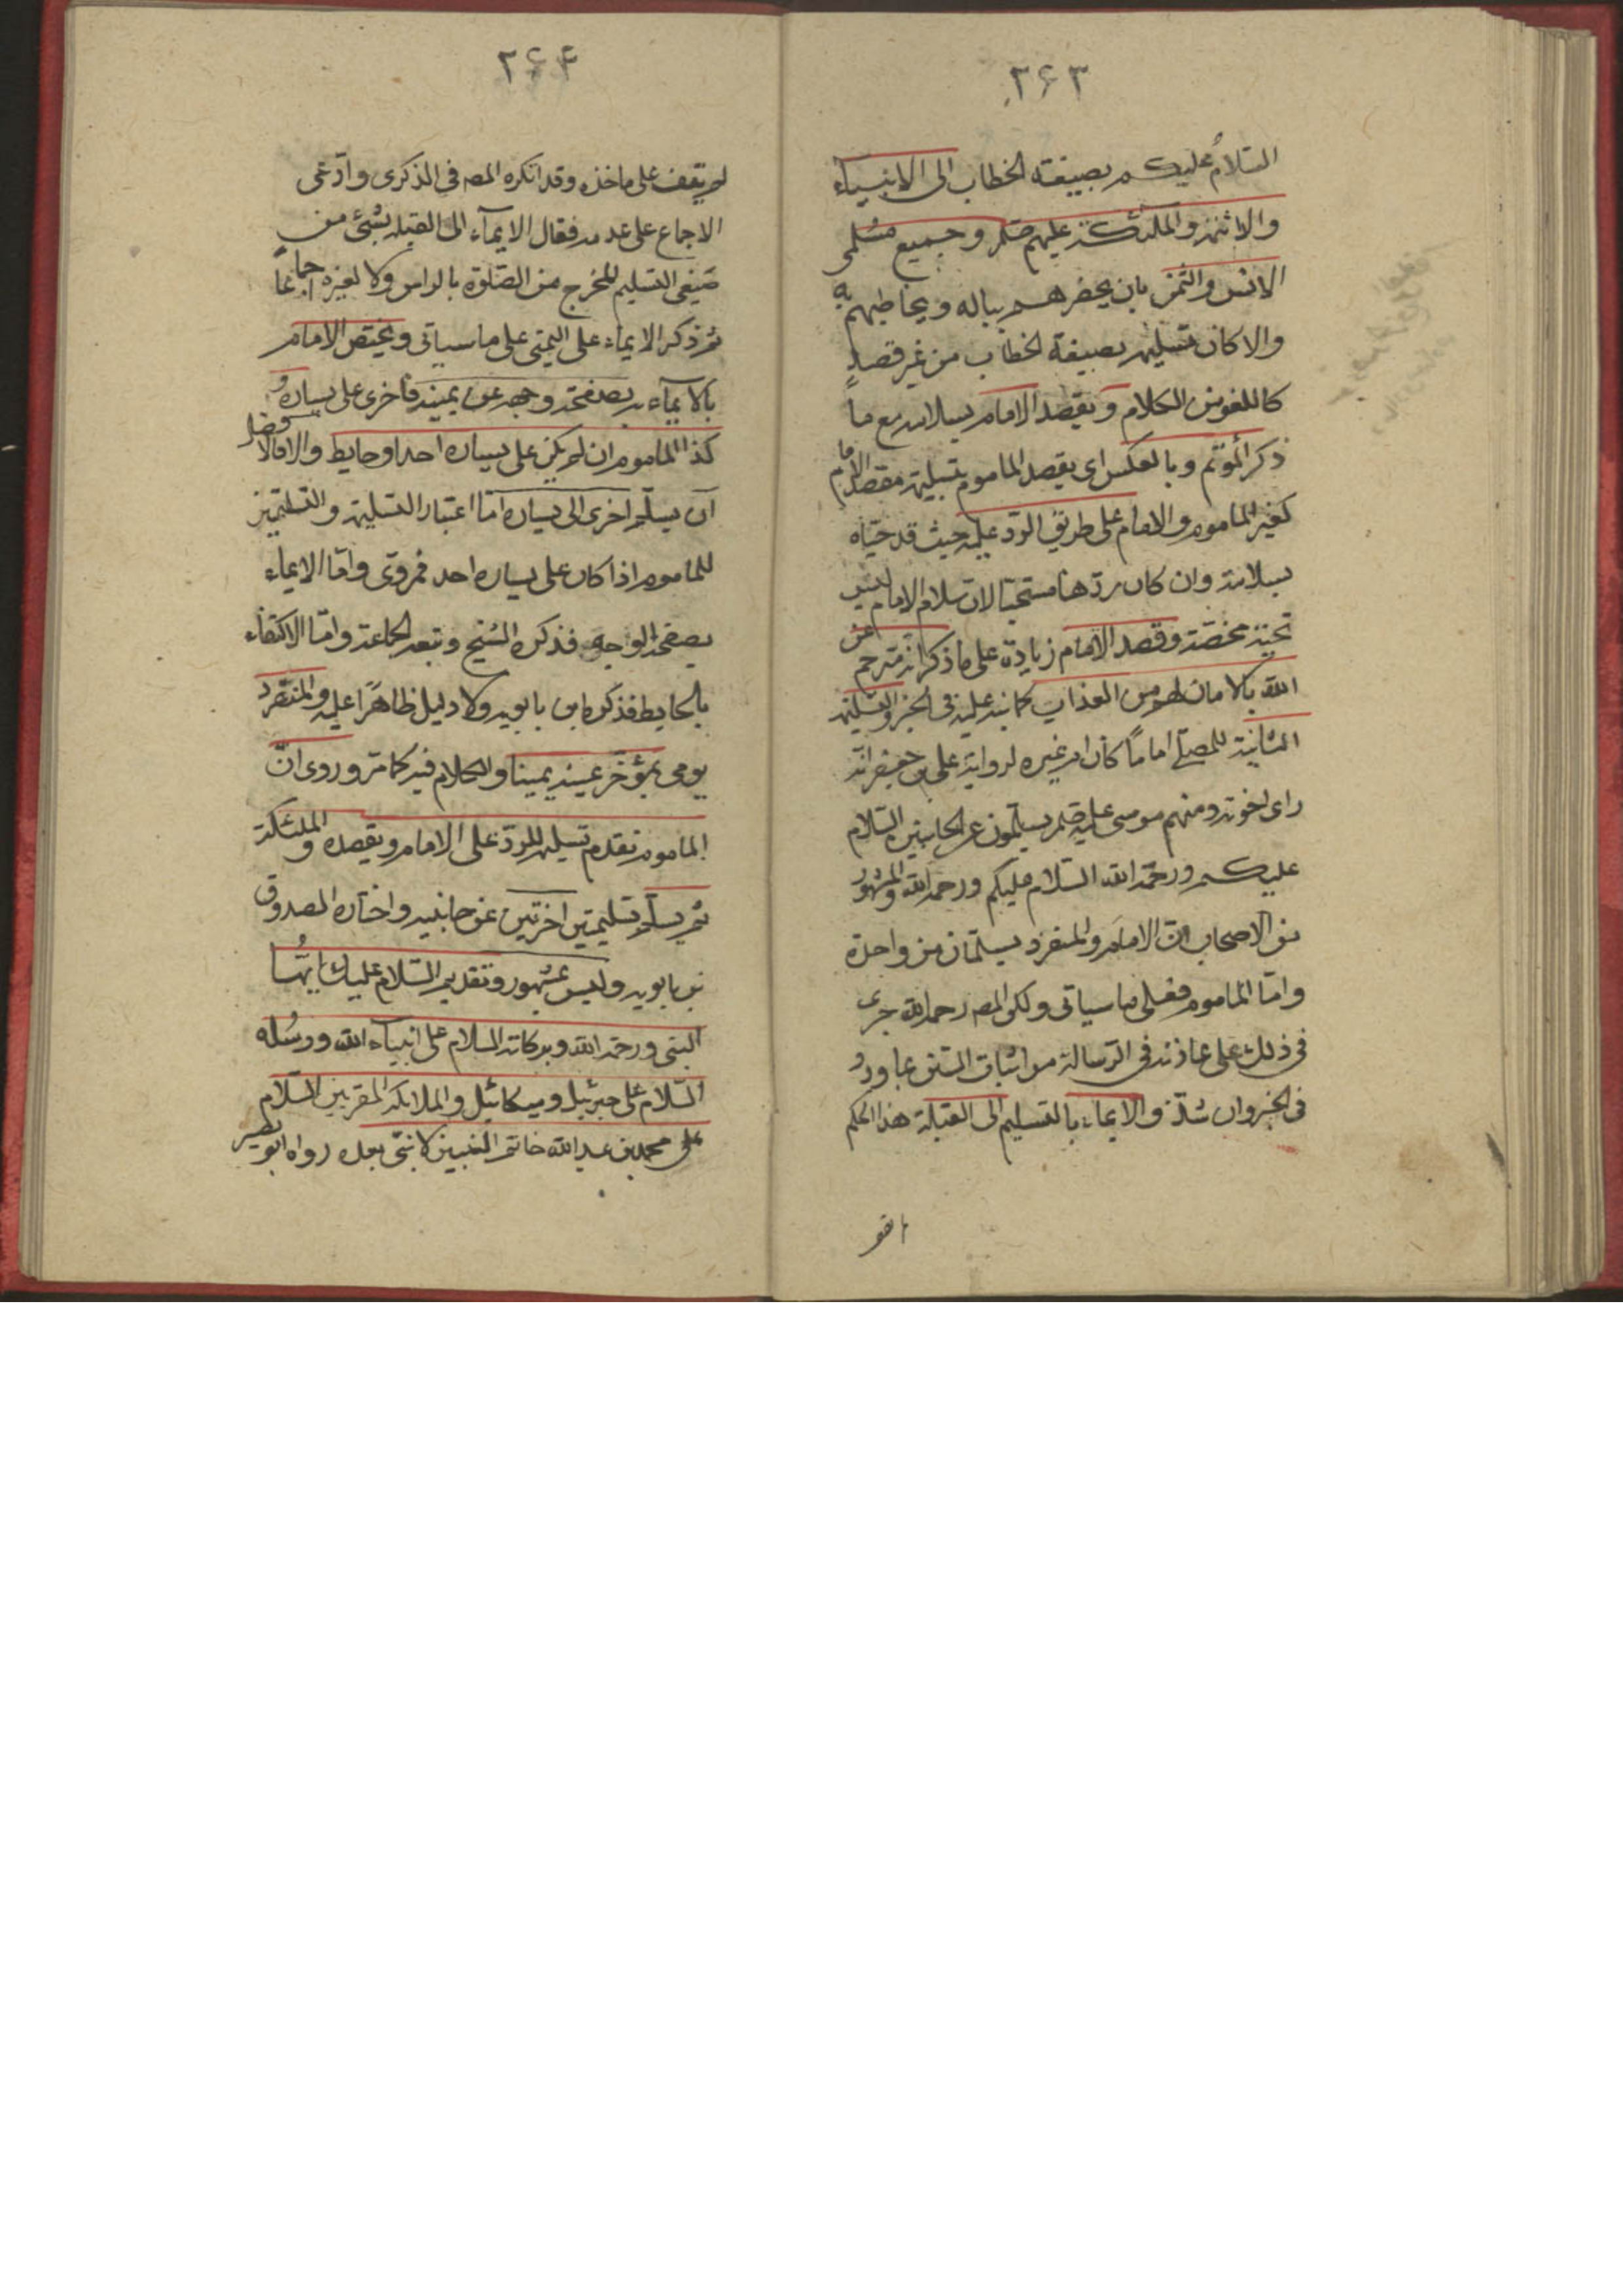 ٢۶٣
السّلام عليكم بصيغة الخطاب الى الانبياء
والائمة والملئكة عليهم صلم وجميع مسلمى
الانس والجن بان يحضرهم بباله ويخاطبهم به
والا كان تسليمه بصيغة الخطاب من غير قصدٍ
كاللغو من الكلام ويقصد الامام بسلامه مع ما
ذكر المؤتم وبالعكس اى يقصد الماموم بتسليمه مقصد الامام
كغير الماموم والامام على طريق الرد عليه حيث قد حيّاه
بسلامه وان كان ردّها مستحبا لان سلام الامام ليس
تحية محضة وقصد الامام زيادة على ما ذكر انه مترجم عن
الله بالامان لهم من العذاب كما نبه عليه فى الخبر والتسليمة
الثانية للمصلّى اماماً كان ام غيره لرواية على بن جعفر انه
راى اخوته ومنهم موسى عليه صلم يسلّمون عن الجانبين السّلام
عليكم ورحمة الله السّلام عليكم ورحمة الله والمشهور
بين الاصحاب انّ الامام والمنفرد يسلّمان من واحدة
وامّا الماموم فعلى ما سياتى ولكن المصـ رحمه الله جرى
فى ذلك على عادته فى الرّسالة من اثبات السنن بما ورد
فى الخبر وان شذّ والايماء بالتسليم الى القبلة هذا الحكم
٢۶۴
لم يقف على ماخذه وقد انكره المصـ فى الذكرى وادّعى
الاجماع على عدمه فقال الايمآء الى القبله بشئ من
صيغى التسليم المخرج من الصّلوة بالراس ولا لغيره اجماعاً
ثم ذكر الايماء على اليمنى على ما سياتى ويختص الامام
بالايمآء بصفحة وجهه عن يمينه فاخرى على يساره و
كذا الماموم ان لم يكن على يساره احد او حايط والا فالافضل
ان يسلّم اخرى الى يساره امّا اعتبار التسليمة والتسليمتين
للماموم اذا كان على يساره احد فمروى وامّا الايماء
بصفحة الوجه فذكره الشيخ وتبعه الجماعة وامّا الاكتفاء
بالحايط فذكره ابن بابويه ولا دليل ظاهراً عليه والمنفرد
يومى بمؤخر عينه يمينا والكلام فيه كما مرّ وروى انّ
الماموم تقدم تسليمه للردّ على الامام ويقصده والملئكة
ثم يسلّم تسليمتين اخرتين عن جانبيه واختاره الصدوق
بن بابويه وليس بمشهور وتقديم السّلام عليك ايّها
النبى ورحمة الله وبركاته السلام على انبياء الله ورسُله
السّلام على جبرئيل وميكائيل والملائكه المقربين السّلام
على محمد بن عبد الله خاتم النبيين لا نبىّ بعده رواه ابو بصير